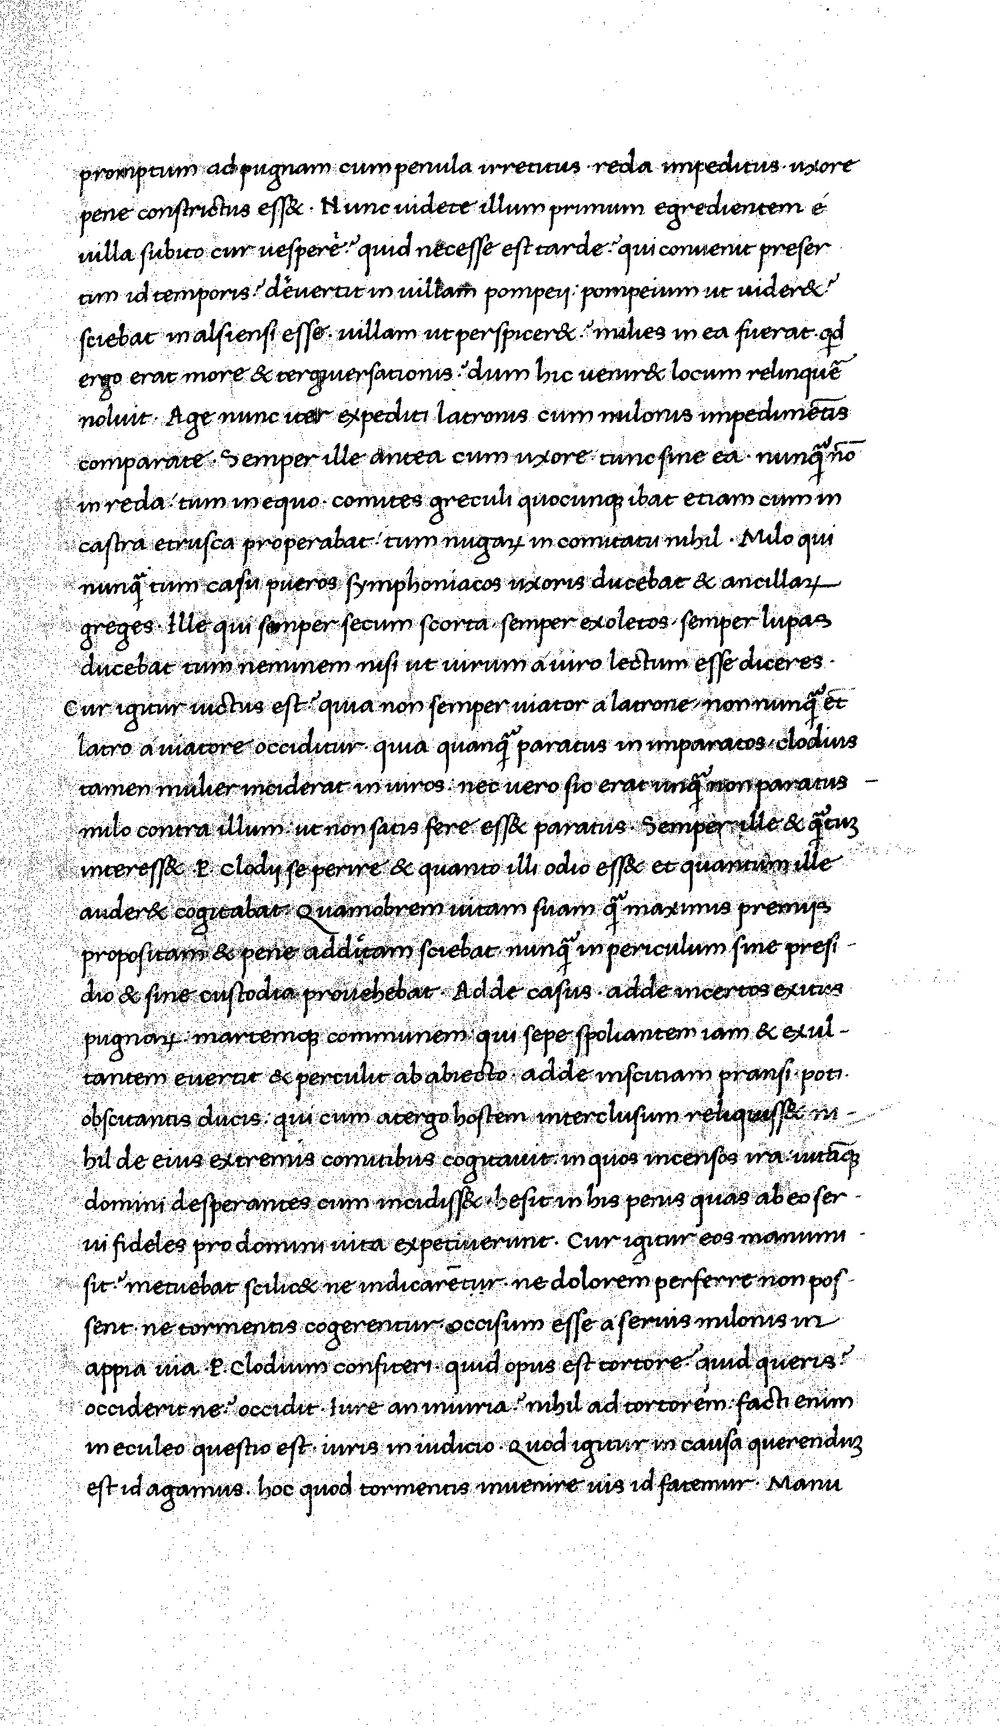 promptum ad pugnam cum penula irretitus · reda impeditus · uxore
pene constrictus ess& · Nunc uidete illum primum egredientem é
uilla subito cur uesperè? quid necesse est tarde? qui conuenit preser
tim id temporis? deuertit in uillam pompeij: pompeium ut uider&?
sciebat in alsiensi esse. uillam ut perspicer&? milies in ea fuerat. qd
ergo erat more & tergiuersationis? dum hic uenir& locum relinquē
noluit. Age nunc iter expediti latronis cum milonis impedimētis
comparate. Semper ille antea cum uxore · tunc sine ea · nunq̃ nō
in reda: tum in equo. comites greculi quocunq; ibat etiam cum in
castra etrusca properabat: tum nugaꝝ in comitatu nihil. Milo qui
nunq̃ tum casu pueros symphoniacos uxoris ducebat & ancillaꝝ
greges. Ille qui semper secum scorta · semper exoletos · semper lupas
ducebat tum neminem nisi ut uirum a uiro lectum esse diceres.
Cur igitur uictus est? quia non semper uiator a latrone, non nunq̃ et
latro a uiatore occiditur. quia quanq̃ paratus in imparatos, clodius
tamen mulier inciderat in uiros. nec uero sic erat unq̃ non paratus
milo contra illum: ut non satis fere ess& paratus. Semper ille & q̃tuꝫ
interess& P. Clodij se perire & quanto illi odio ess& et quantum ille
auder& cogitabat. Quamobrem uitam suam q̃ maximis premijs
propositam & pene additam sciebat nunq̃ in periculum sine presi-
dio & sine custodia prouehebat. Adde casus. adde incertos exitus
pugnaꝝ: martemq; communem qui sepe spoliantem iam & exul-
tantem euertit & perculit ab abiecto. adde inscitiam pransi. poti.
obscitantis ducis. qui cum atergo hostem interclusum reliquiss& ni-
hil de eius extremis comitibus cogitauit. in quos incensos ira: uitāq;
domini desperantes cum incidiss&. hesit in his penis quas ab eo ser-
ui fideles pro domini uita expetiuerunt. Cur igitur eos manumi-
sit? metuebat scilic& ne indicarētur. ne dolorem perferre non pos-
sent. ne tormentis cogerentur occisum esse a seruis milonis in
appia uia P. Clodium confiteri. quid opus est tortore? quid queris?
occiderit ne? occidit. Iure an iniuria? nihil ad tortorem: facti enim
in eculeo questio est. iuris in iudicio. Quod igitur in causa querenduꝫ
est id agamus. hoc quod tormentis inuenire uis id fatemur. Manu